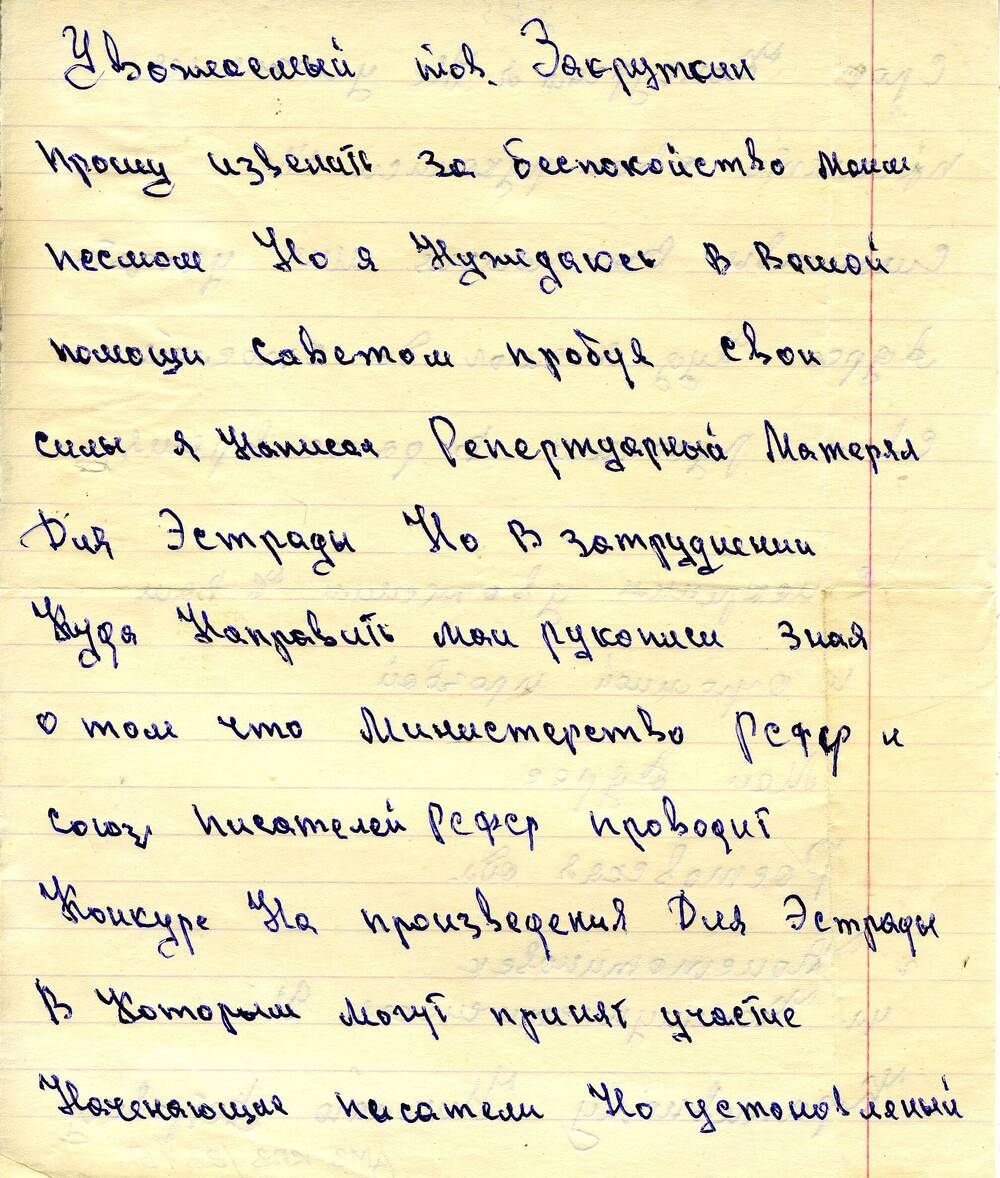 Уважаемый тов. Закруткин
прошу извенить за беспокойство моим
песмом Но я Нуждаюсь в вашой
помощи саветом пробуя свои
силы я Написал Репертуарный Матерял
Для Эстрады Но в затруднении
Куда Направить мои рукописи зная
о том что Министерство РСФСР и
союз писателей РСФСР проводит
Конкурс На произведения Для Эстрады
В Котором могут принят участие
Наченающие писатели Но установленый